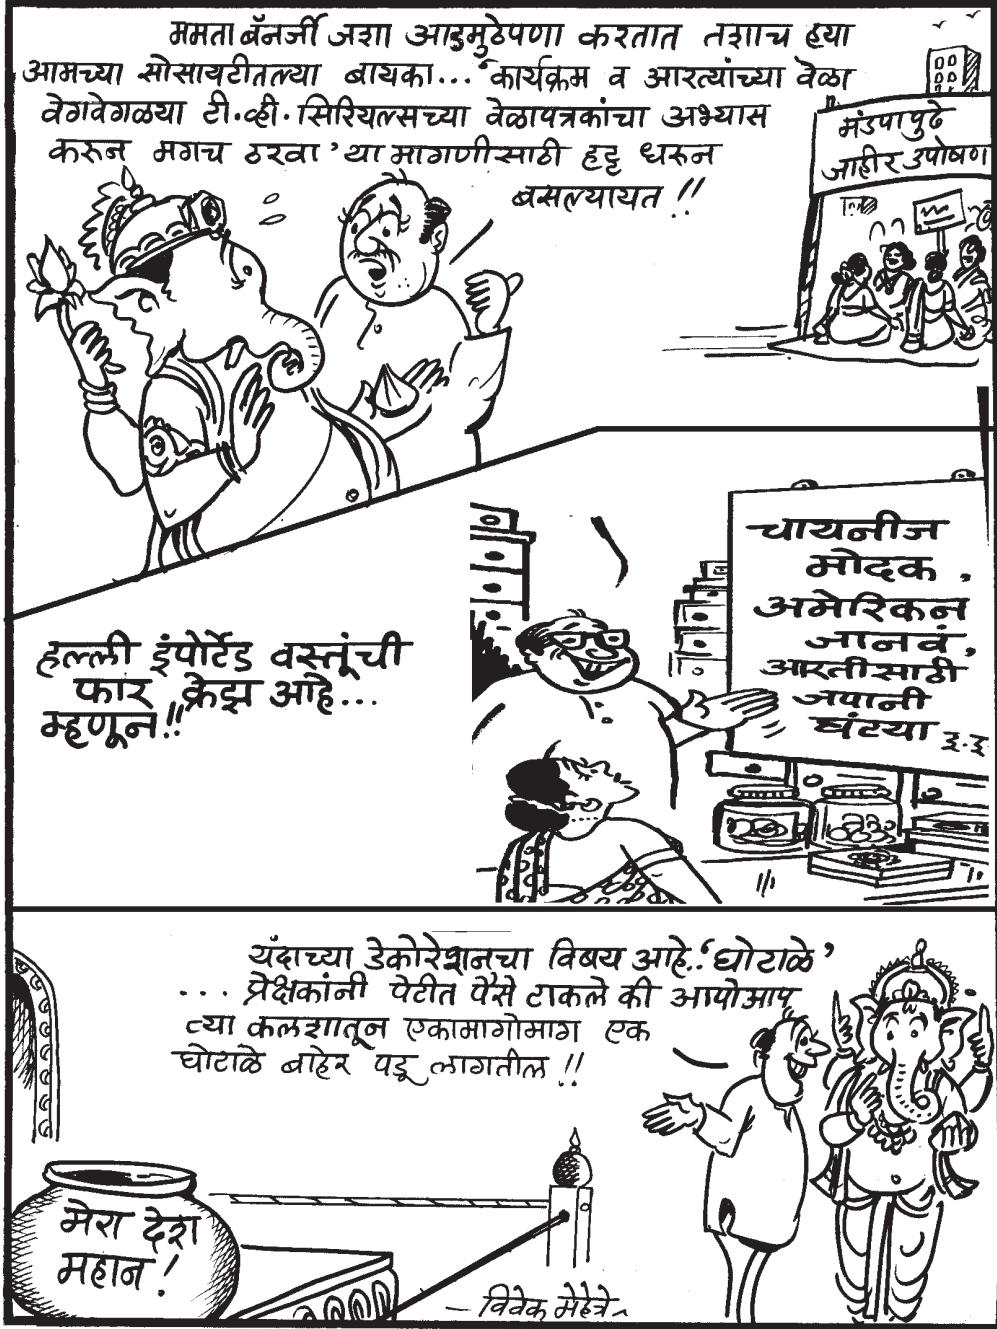 ममता बॅनर्जी जशा आडमुठेपणा करतात तशाच ह्या
आमच्या सोसायटीतल्या बायका... 'कार्यक्रम व आरत्यांच्या वेळा
वेगवेगळया टी.व्ही.सिरियल्सच्या वेळापत्रकांचा अभ्यास
करून मगच ठरवा' या मागणीसाठी हट्ट धरून
बसल्यायत !!
मंडपापुढे
जाहीर उपोषण
चायनीज
मोदक,
अमेरिकन
जानवं,
आरतीसाठी
जपानी
घंटया इ.इ.
हल्ली इंपोर्टेड वस्तूंची
फार क्रेझ आहे...
म्हणून!!
यंदाच्या डेकोरेशनचा विषय आहे..'घोटाळे'
... प्रेक्षकांनी पेटीत पैसे टाकले की आपोआप
त्या कलशातून एकामागोमाग एक
घोटाळे बाहेर पडू लागतील !!
मेरा देश
महान !
– विवेक मेहेत्रे